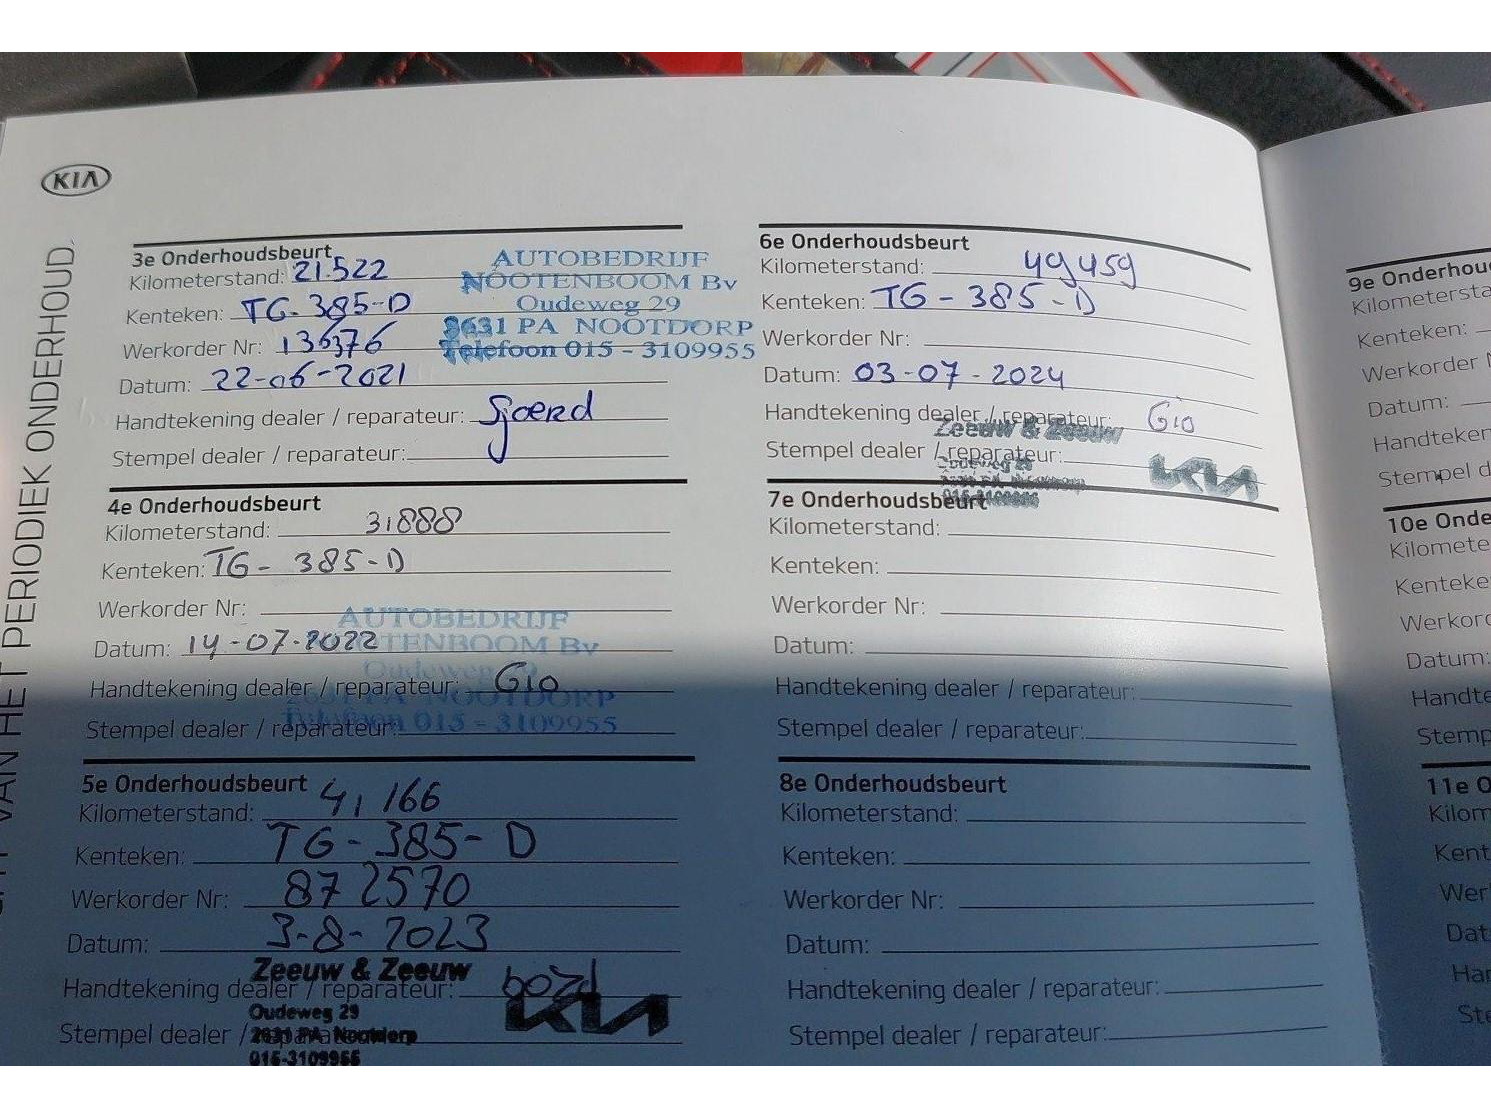 KIA
VAN HET PERIODIEK ONDERHOUD
3e Onderhoudsbeurt
Kilometerstand: 21.522
Kenteken: TG-385-D
Werkorder Nr: 136376
Datum: 22-06-2021
Handtekening dealer / reparateur: Sjoerd
Stempel dealer / reparateur:
AUTOBEDRIJF
NOOTENBOOM Bv
Oudeweg 29
2631 PA NOOTDORP
Telefoon 015 - 3109955
4e Onderhoudsbeurt
Kilometerstand: 31888
Kenteken: TG - 385-D
Werkorder Nr:
Datum: 14-07-2022
Handtekening dealer / reparateur: Gio
Stempel dealer / reparateur:
AUTOBEDRIJF
NOOTENBOOM Bv
Oudeweg 29
2631 PA NOOTDORP
Telefoon 015 - 3109955
5e Onderhoudsbeurt
Kilometerstand: 41166
Kenteken: TG-385-D
Werkorder Nr: 872570
Datum: 3-8-2023
Handtekening dealer / reparateur:
Stempel dealer / reparateur:
Zeeuw & Zeeuw
Oudeweg 29
2631 PA Nootdorp
015-3109955
KIA
6e Onderhoudsbeurt
Kilometerstand: 49459
Kenteken: TG - 385 - D
Werkorder Nr:
Datum: 03-07-2024
Handtekening dealer / reparateur: Gio
Stempel dealer / reparateur:
Zeeuw & Zeeuw
Oudeweg 29
KIA
7e Onderhoudsbeurt
Kilometerstand:
Kenteken:
Werkorder Nr:
Datum:
Handtekening dealer / reparateur:
Stempel dealer / reparateur:
8e Onderhoudsbeurt
Kilometerstand:
Kenteken:
Werkorder Nr:
Datum:
Handtekening dealer / reparateur:
Stempel dealer / reparateur:
9e Onderhou
Kilometersta
Kenteken:
Werkorder N
Datum:
Handteken
Stempel d
10e Onde
Kilomete
Kenteke
Werkord
Datum:
Handte
Stemp
11e O
Kilom
Kent
Wer
Dat
Har
Ste